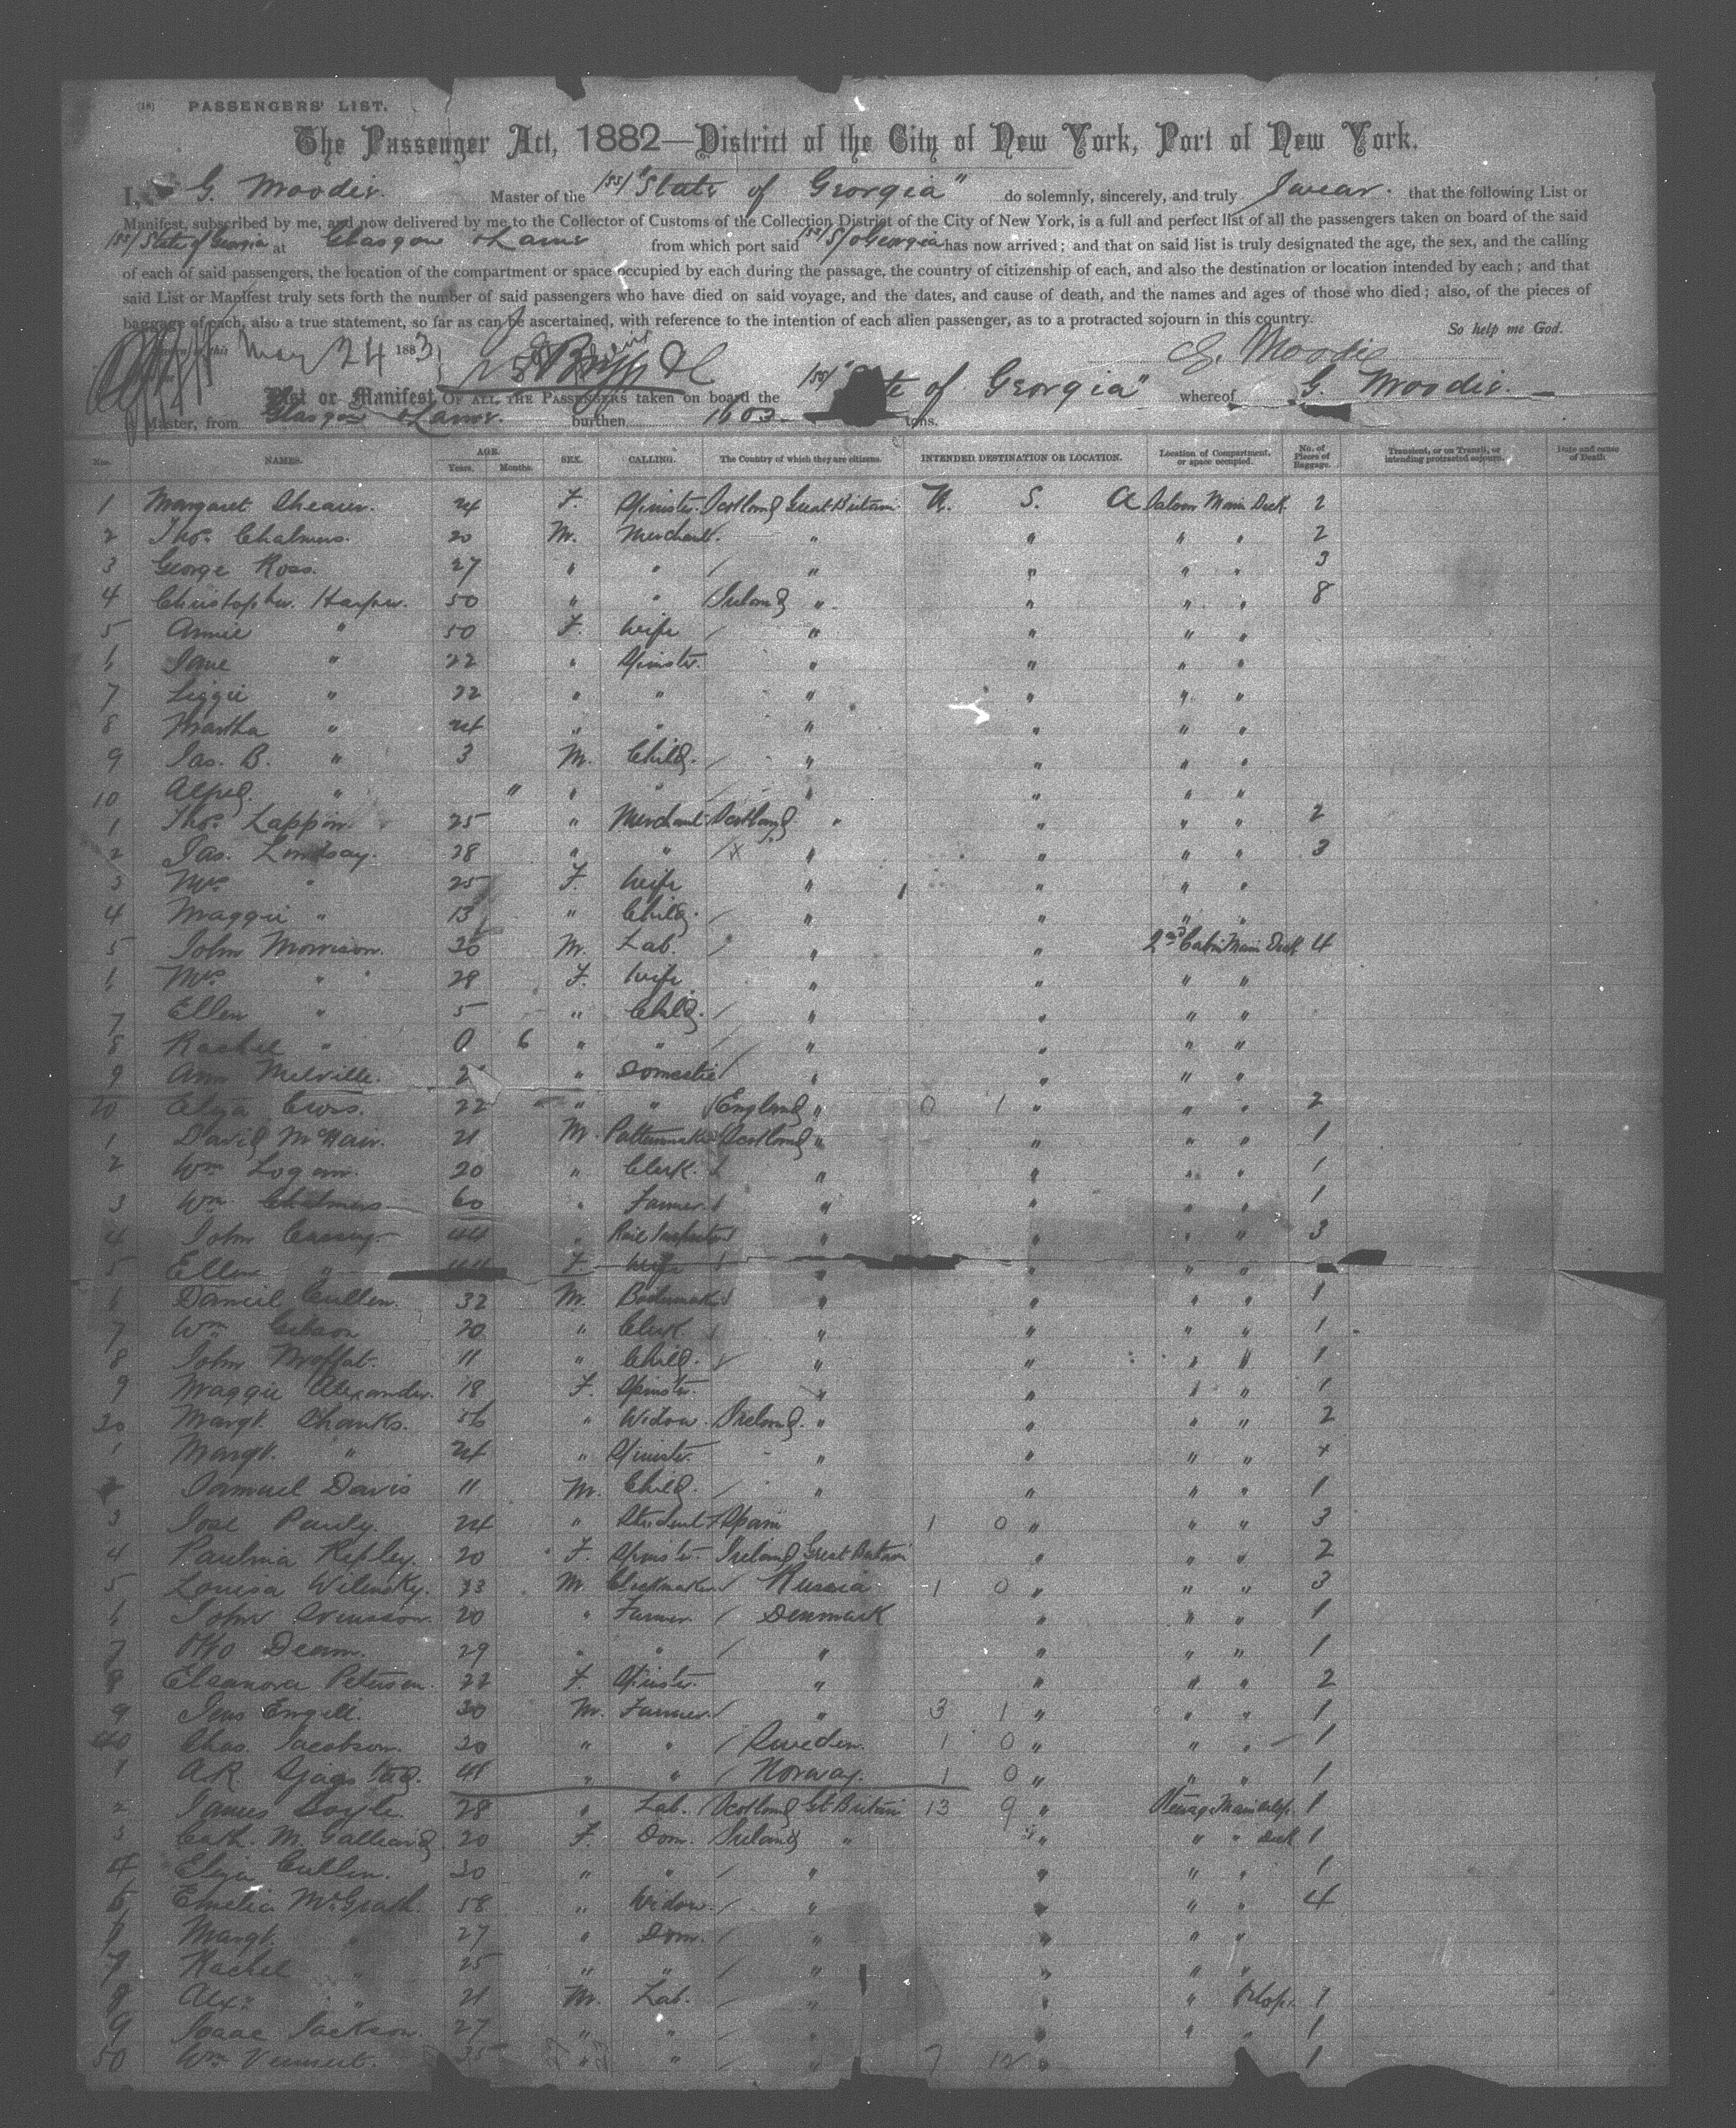 (18) PASSENGERS' LIST.
The Passenger Act, 1882—District of the City of New York, Port of New York.
I, G. Moodie. Master of the "State of Georgia" do solemnly, sincerely, and truly Swear. that the following List or
Manifest, subscribed by me, and now delivered by me to the Collector of Customs of the Collection District of the City of New York, is a full and perfect list of all the passengers taken on board of the said
State of Georgia at Glasgow & Larne from which port said S/o Georgia has now arrived; and that on said list is truly designated the age, the sex, and the calling
of each of said passengers, the location of the compartment or space occupied by each during the passage, the country of citizenship of each, and also the destination or location intended by each; and that
said List or Manifest truly sets forth the number of said passengers who have died on said voyage, and the dates, and cause of death, and the names and ages of those who died; also, of the pieces of
baggage of each, also a true statement, so far as can be ascertained, with reference to the intention of each alien passenger, as to a protracted sojourn in this country. So help me God.
this May 24 1883 G. Moodie
List or Manifest OF ALL THE PASSENGERS taken on board the of Georgia" whereof G. Moodie.
Master, from Glasgow & Larne. burthen 1603 tons.
Nos. NAMES. AGE. Years. Months. SEX. CALLING. The Country of which they are citizens. INTENDED DESTINATION OR LOCATION. Location of Compartment, or space occupied. No. of Pieces of Baggage. Transient, or on Transit, or intending protracted sojourn. Date and cause of Death
1 Margaret Shearer. 24 F. Spinster. Scotland Great Britain U. S. A Saloon Main Deck 2
2 Thos. Chalmers. 20 M. Merchant. " " " " 2
3 George Ross. 27 " " " " " " 3
4 Christopher Harper. 50 " " Ireland " " " " 8
5 Annie " 50 F. Wife " " " "
6 Jane " 22 " Spinster. " " " "
7 Lizzie " 22 " " " " " "
8 Martha " 24 " " " " " "
9 Jas. B. " 3 M. Child. " " " "
10 Alfred. " " " " " " " "
1 Thos. Lappin. 25 " Merchant Scotland " " " " 2
2 Jas. Lindsay. 28 " " " " " " 3
3 Mrs " 25 F. Wife " " " "
4 Maggie " 13 " Child. " " " "
5 John Morrison. 36 M. Lab. " " 2nd Cabin Main Deck 4
6 Mrs " 29 F. Wife " " " "
7 Ellen " 5 " Child. " " " "
8 Rachel " 0 6 " " " " " "
9 Ann Melville. " Domestic " " " "
20 Eliza Cross. 22 " " England " 0 1 " " " 2
1 David McNair. 21 M. Patternmaker Scotland " " " " 1
2 Wm Logan. 20 " Clerk. " " " " 1
3 Wm. Chalmers 60 " Farmer. " " " " 1
4 John 44 " " " " " 3
5 Ellen " 44 F. Wife " " " "
6 Daniel Cullen. 32 M. " " " " 1
7 Wm Gibson 20 " Clerk. " " " " 1
8 John Moffat. 11 " Child. " " " " 1
9 Maggie Alexander. 18 F. Spinster. " " " " 1
30 Margt. Shanks. 56 " Widow. Ireland. " " " " 2
1 Margt. " 24 " Spinster. " " " " +
2 Samuel Davis 11 M. Child. " " " " 1
3 Jose 24 " Student Spain 1 0 " " " 3
4 Paulina Ripley. 20 F. Spinster. Ireland Great Britain " " " 2
5 Louisa Wilinsky. 33 M. Clockmaker Russia 1 0 " " " 3
6 John 20 " Farmer. Denmark " " " 1
7 Otto 29 " " " " " " 1
8 Eleanora Peterson. 22 F. Spinster. " " " " 2
9 Jens Engell. 30 M. Farmer. " 3 1 " " " 1
40 Chas. Jacobson. 20 " " Sweden. 1 0 " " " 1
1 A.R. 41 " " Norway. 1 0 " " " 1
2 James Boyle. 28 " Lab. Scotland Gt Britain 13 9 " Steerage Main 1
3 Cath. 20 F. Dom. Ireland " " " " Deck 1
4 Eliza Cullen. 30 " " " " " " 1
5 Emelia McGrath. 58 " Widow. " " " " 4
6 Margt. " 27 " Dom. " " " "
7 Rachel " 25 " " " " " "
8 Alexr " 21 M. Lab. " " " 1
9 Isaac Jackson. 27 " " " " " " 1
50 Wm 35 " " " 7 12 " 1